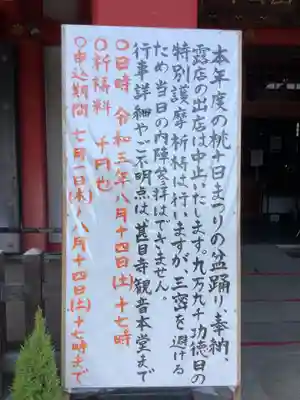 本年度の桃十日まつりの盆踊り、奉納、
露店の出店は中止いたします。九万九千功徳日の
特別護摩祈祷は行いますが、三密を避ける
ため当日の内陣参拝はできません。
行事詳細やご不明点は、甚目寺観音本堂まで
〇日時 令和三年八月十四日(土)十七時
〇祈祷料 千円也
〇申込期間 七月一日(木)〜八月十四日(土)十七時まで